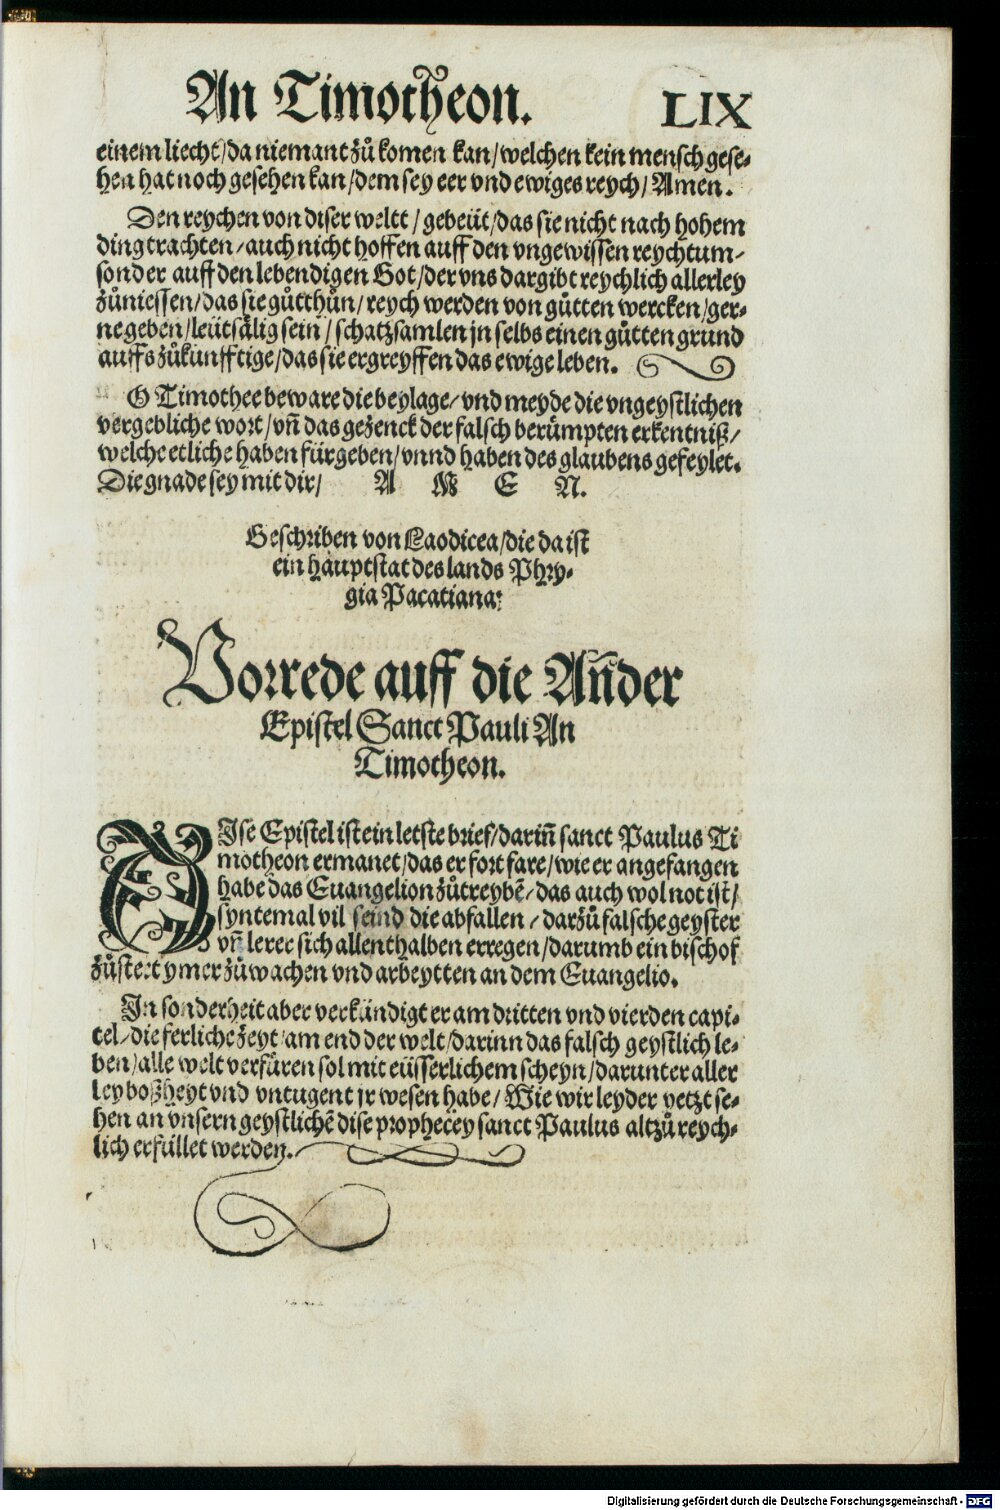 An Timotheon. LIX
einem liecht/da niemant zů komen kan/welchen kein mensch gese-
hen hat noch gesehen kan/dem sey eer vnd ewiges reych/Amen.
Den reychen von diser weltt/gebeüt/das sie nicht nach hohem
ding trachten/auch nicht hoffen auff den vngewissen reychtum-
sonder auff den lebendigen Got/der vns dargibt reychlich allerley
zůniessen/das sie gůt thůn/reych werden von gůtten wercken/ger-
ne geben/leütsälig sein/schatz samlen jn selbs einen gůtten grund
auffs zůkunfftige/das sie ergreyffen das ewige leben.
O Timothee beware die beylage/vnd meyde die vngeystlichen
vergebliche wort/vñ das gezenck der falsch berümpten erkentniß/
welche etliche haben fürgeben/vnnd haben des glaubens gefeylet.
Die gnade sey mit dir/ A M E N.
Geschriben von Laodicea/die da ist
ein hauptstat des lands Phry-
gia Pacatiana:
Vorrede auff die Añder
Epistel Sanct Pauli An
Timotheon.
DJse Epistel ist ein letste brief/dariñ sanct Paulus Ti
motheon ermanet/das er fort fare/wie er angefangen
habe das Euangelion zůtreybē/das auch wol not ist/
syntemal vil seind die abfallen/darzů falsche geyster
vñ lerer sich allenthalben erregen/darumb ein bischof
zůsteet ymer zůwachen vnd arbeytten an dem Euangelio.
Jn sonderheit aber verkündigt er am dritten vnd vierden capi-
tel/die ferliche zeyt/am end der welt/darinn das falsch geystlich le-
ben/alle welt verfüren sol mit eüsserlichem scheyn/darunter aller
ley boßheyt vnd vntugent jr wesen habe/Wie wir leyder yetzt se-
hen an vnsern geystlichē dise prophecey sanct Paulus altzů reych-
lich erfüllet werden.
Digitalisierung gefördert durch die Deutsche Forschungsgemeinschaft - DFG